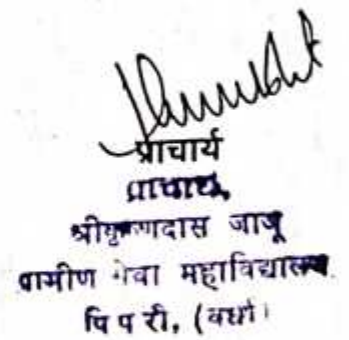 प्राचार्य
प्राचार्य,
श्रीकृष्णदास जाजू
ग्रामीण सेवा महाविद्यालय
पिपरी, (वर्धा)